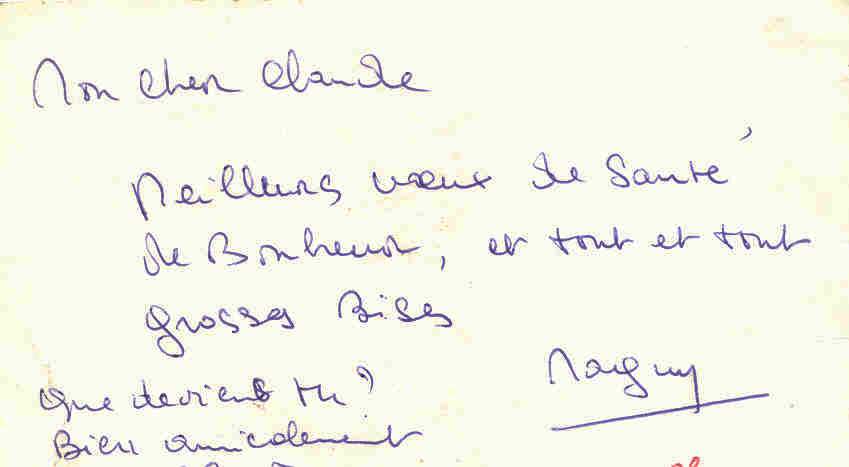 Mon cher Claude
Meilleurs vœux de Santé
de Bonheur, et tout et tout
grosses Bises
Que deviens tu?
Bien amicalement